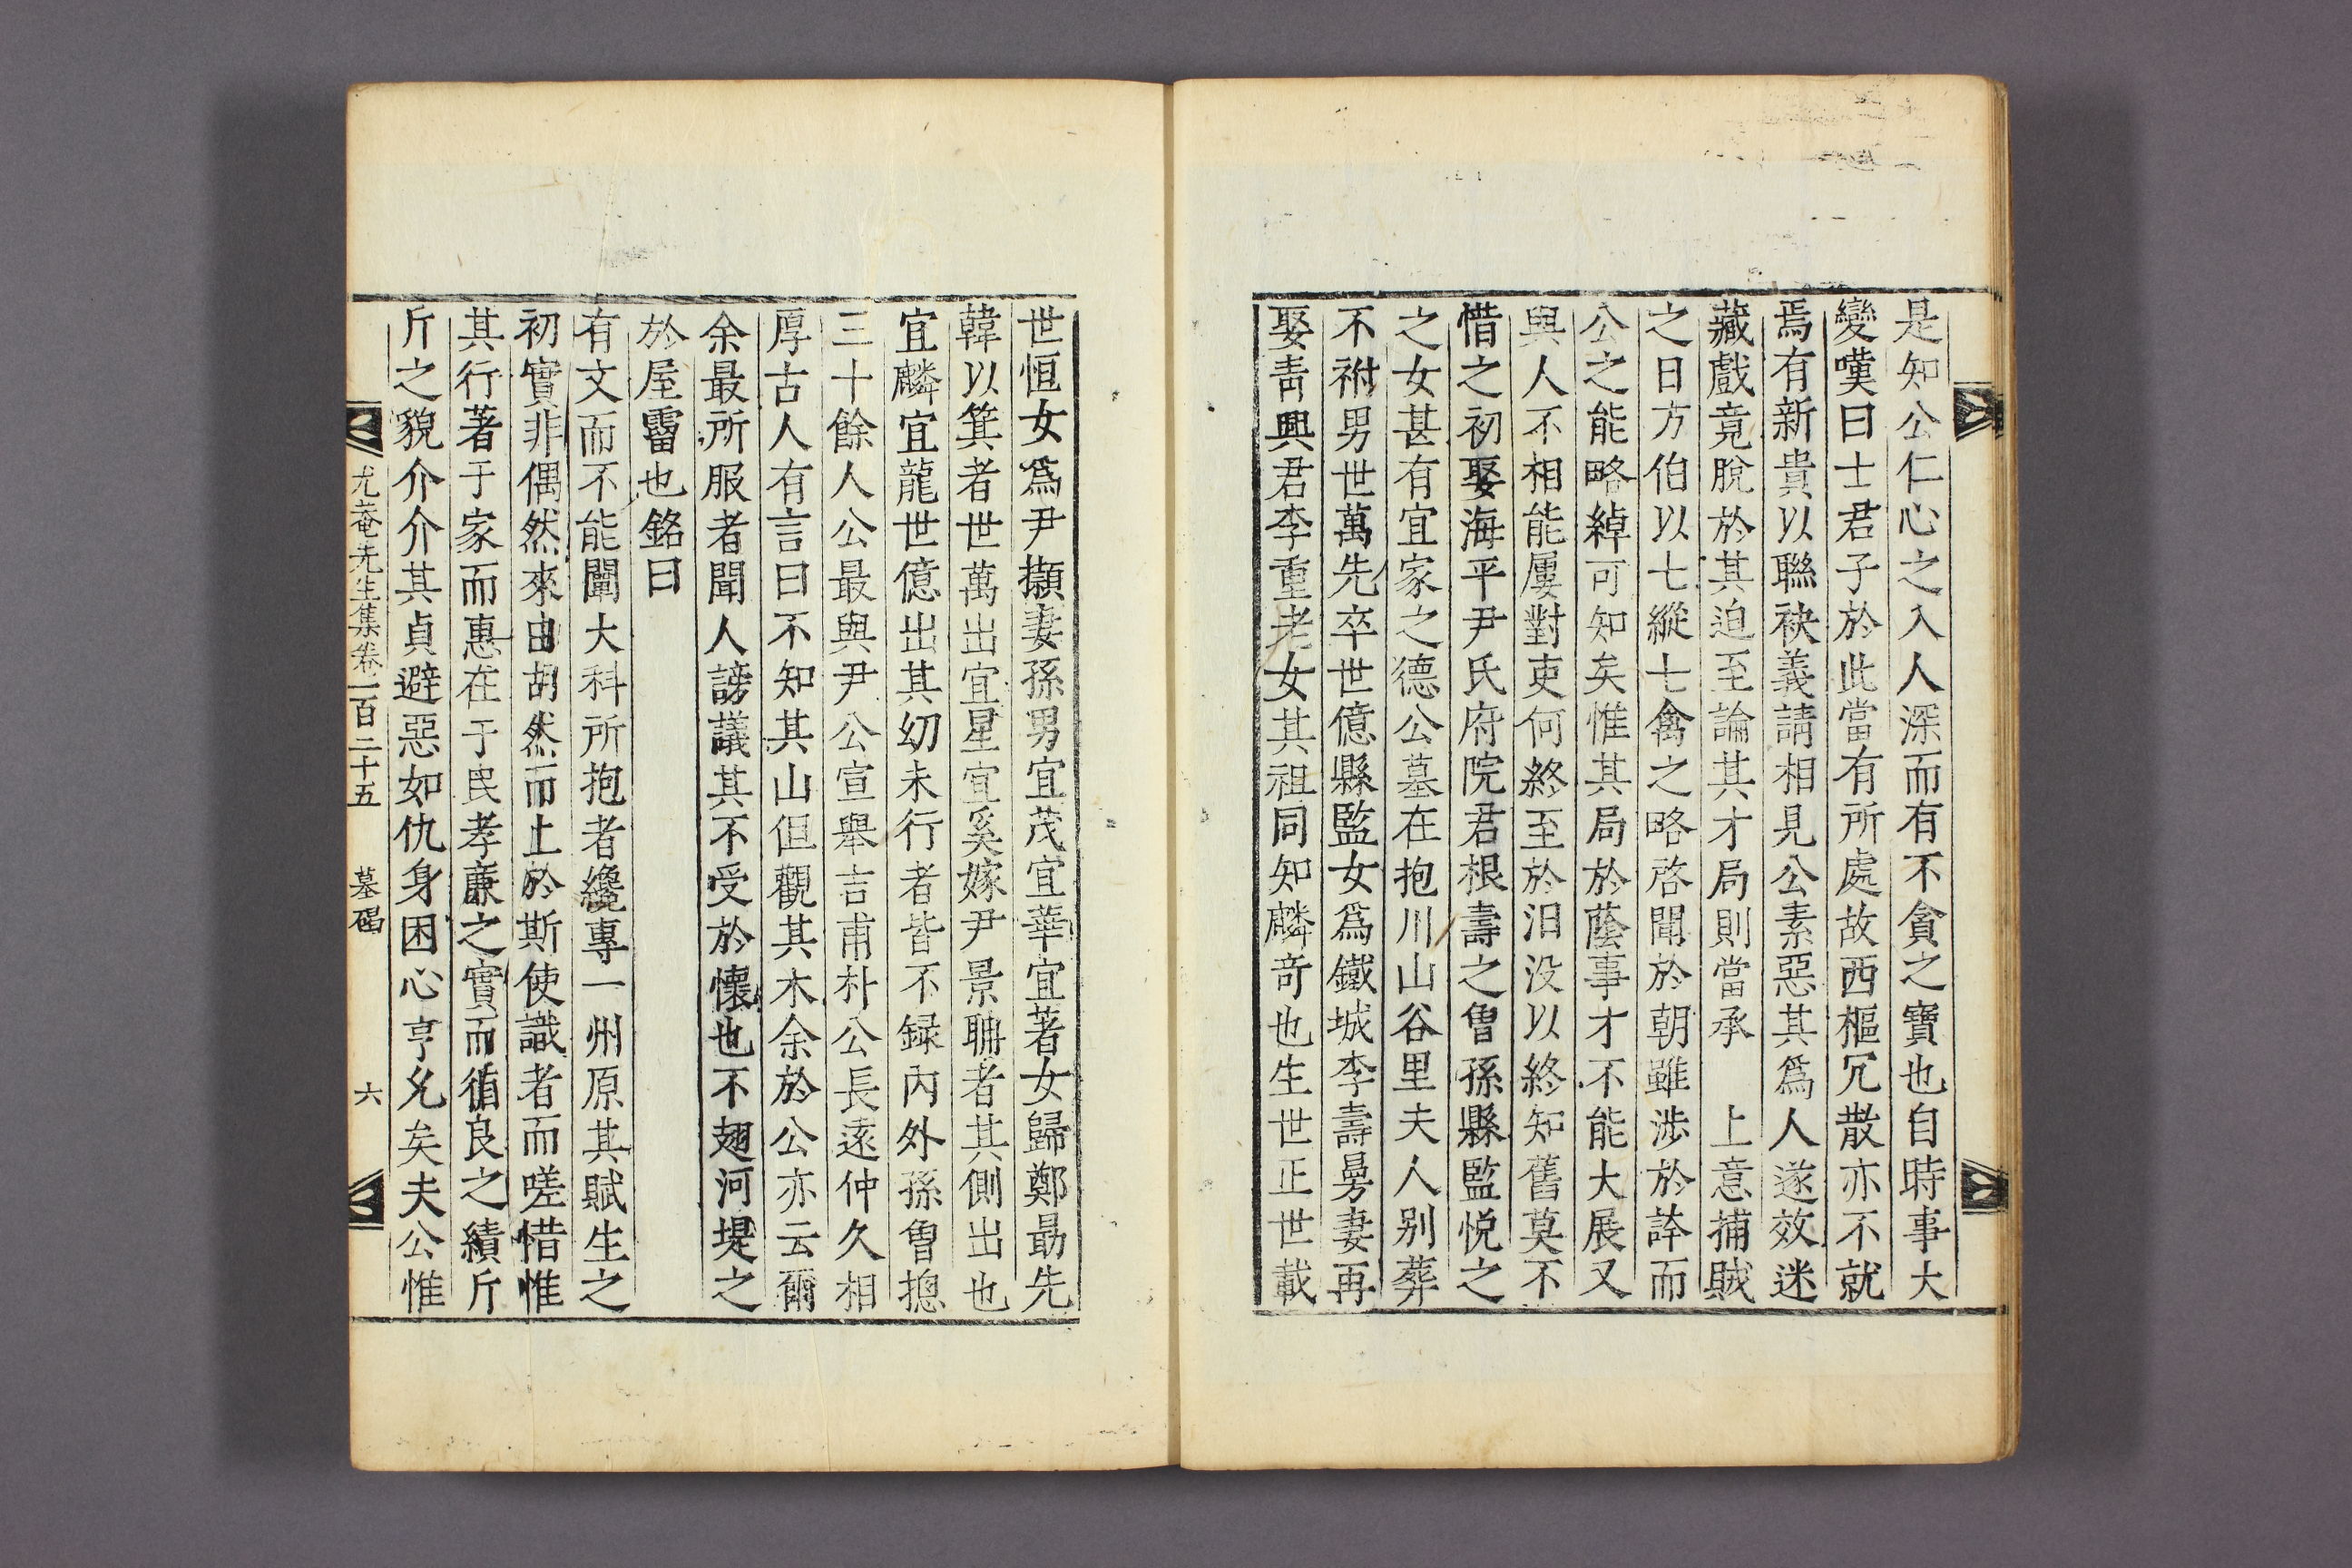 是知公仁心之入人深而有不貪之寶也自時事大
變嘆曰士君子於此當有所處故西樞冗散亦不就
焉有新貴以聯袂義請相見公素惡其爲人遂效迷
藏戲竟脫於其迫至論其才局則當承　上意捕賊
之日方伯以七縱七禽之略啓聞於朝雖涉於誶而
公之能略綽可知矣惟其局於蔭事才不能大展又
與人不相能屢對吏何終至於汨没以終知舊莫不
惜之初娶海平尹氏府院君根壽之曾孫縣監悅之
之女甚有宜家之德公墓在抱川山谷里夫人别葬
不祔男世萬先卒世億縣監女爲鐵城李壽曼妻再
娶靑興君李重老女其祖同知麟奇也生世正世載
世恒女爲尹攧妻孫男宜茂宜華宜著女歸鄭勗先
韓以箕者世萬出宜星宜奚嫁尹景聃者其側出也
宜麟宜龍世億出其幼未行者皆不録內外孫曾摠
三十餘人公最與尹公宣舉吉甫朴公長遠仲久相
厚古人有言曰不知其山但觀其木余於公亦云爾
余最所服者聞人謗議其不受於懷也不翅河堤之
於屋霤也銘曰
有文而不能闡大科所抱者纔專一州原其賦生之
初實非偶然來由胡然而止於斯使識者而嗟惜惟
其行著于家而惠在于民孝廉之實而循良之績斤
斤之貌介介其貞避惡如仇身困心亨允矣夫公惟
尤菴先生集卷一百二十五　墓碣　六